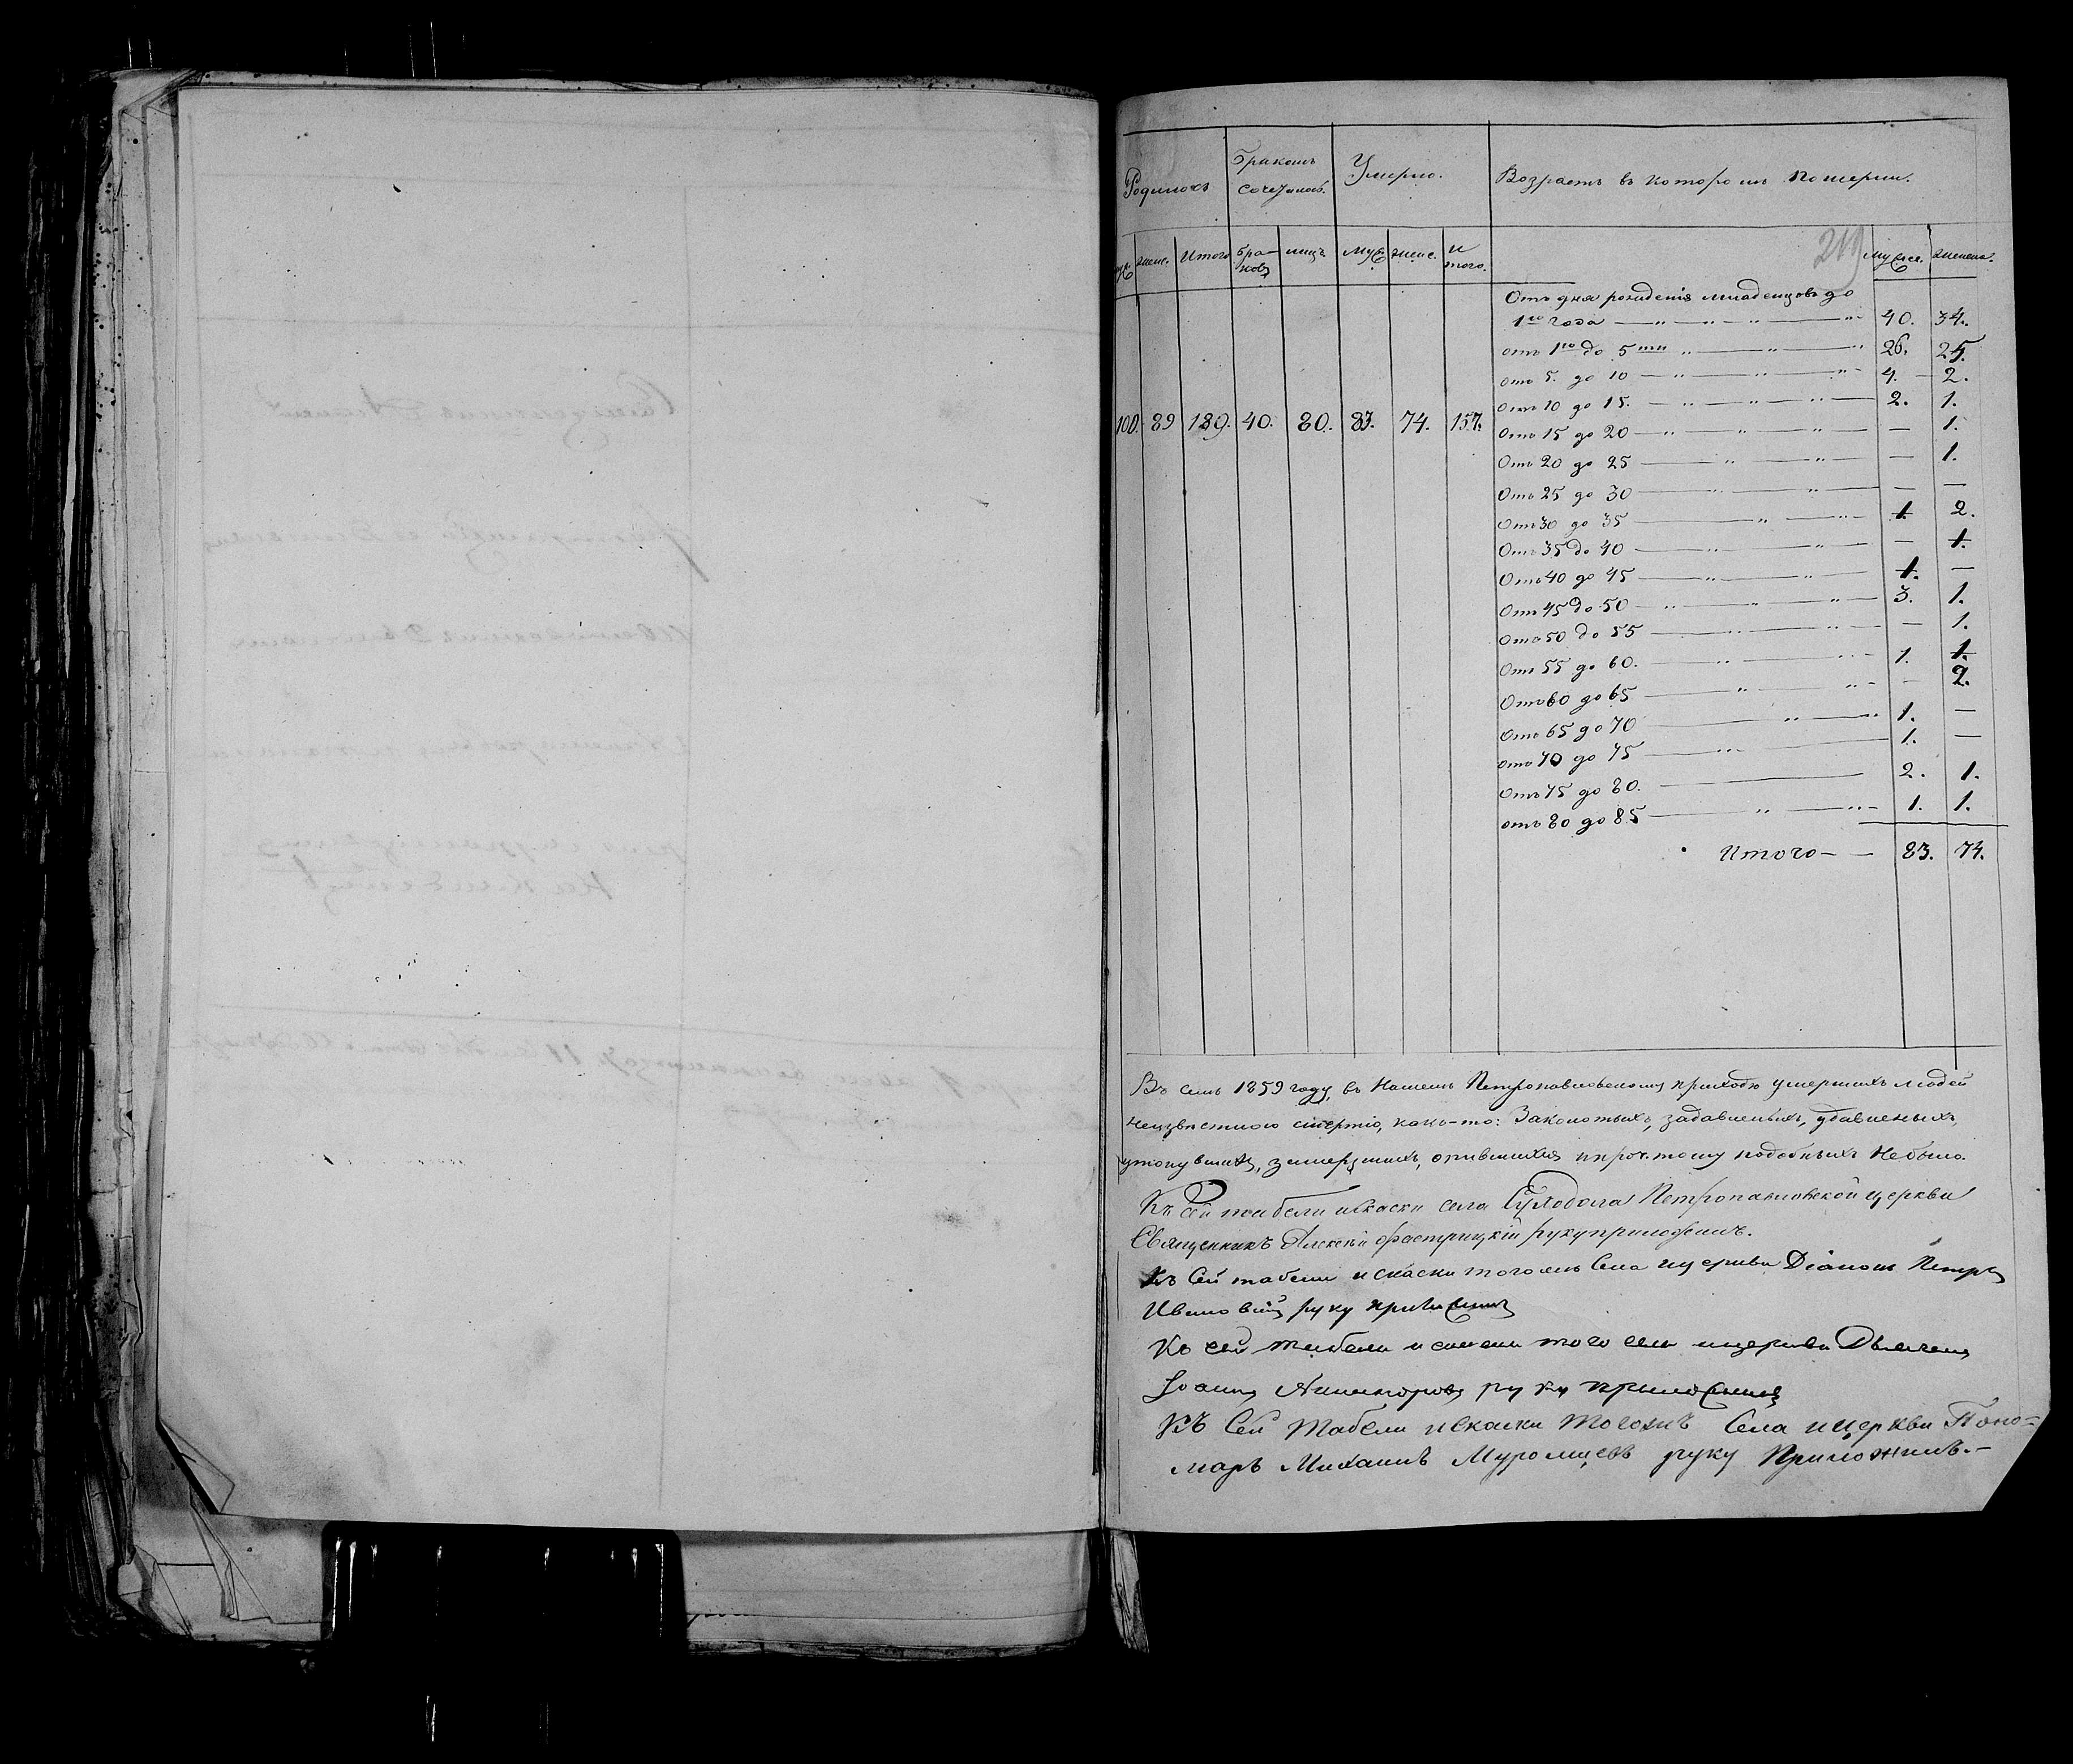 Родилось
Бракомъ сочеталось.
Умерло.
Возрастъ въ которомъ померли.
219
муж. женс. Итого бра-ковъ лицъ. Муж. женс. Итого. мужес. женска.
Отъ дня рожденія младенцовъ до
1го года — 40. 34.
отъ 1го до 5ти — 26. 25.
отъ 5. до 10 — 4. 2.
Отъ 10 до 15. — 2. 1.
100. 89 189. 40. 80. 83. 74. 157.
Отъ 15 до 20 — — 1.
Отъ 20 до 25 — — 1.
Отъ 25 до 30 — — —
Отъ 30 до 35 — 1. 2.
Отъ 35 до 40 — — 1.
Отъ 40 до 45 — 1. —
Отъ 45 до 50 — 3. 1.
Отъ 50 до 55 — — 1.
Отъ 55 до 60. — 1. 1.
Отъ 60 до 65 — — 2.
Отъ 65 до 70 — 1. —
отъ 70 до 75 — 1. —
Отъ 75 до 80. — 2. 1.
отъ 80 до 85 — 1. 1.
Итого — — 83. 74.
Въ семъ 1859 году, въ нашемъ Петропавловскому приходю умершихъ людей
неизвѣстною смертію, какъ-то: Заколотыхъ, задавленыхъ, удавленыхъ,
утонувшихъ, замерзшихъ, опившихся и проч. тому подобныхъ не было.
Къ сей табели и скаски села Суходола Петропавловской церкви
Священникъ Алексѣй руку приложилъ.
Къ Сей табели и скаски тогожъ Села церкви Діаконъ Петръ
Ивановъ руку приложилъ
Къ сей табели и скаски того села и церкви Дьячекъ
Іоаннъ Никаноровъ руку приложилъ
Къ Сей Табели и скаски Тогожъ Села и церкви Поно-
марь Михаилъ Муромцевъ руку Приложилъ.—